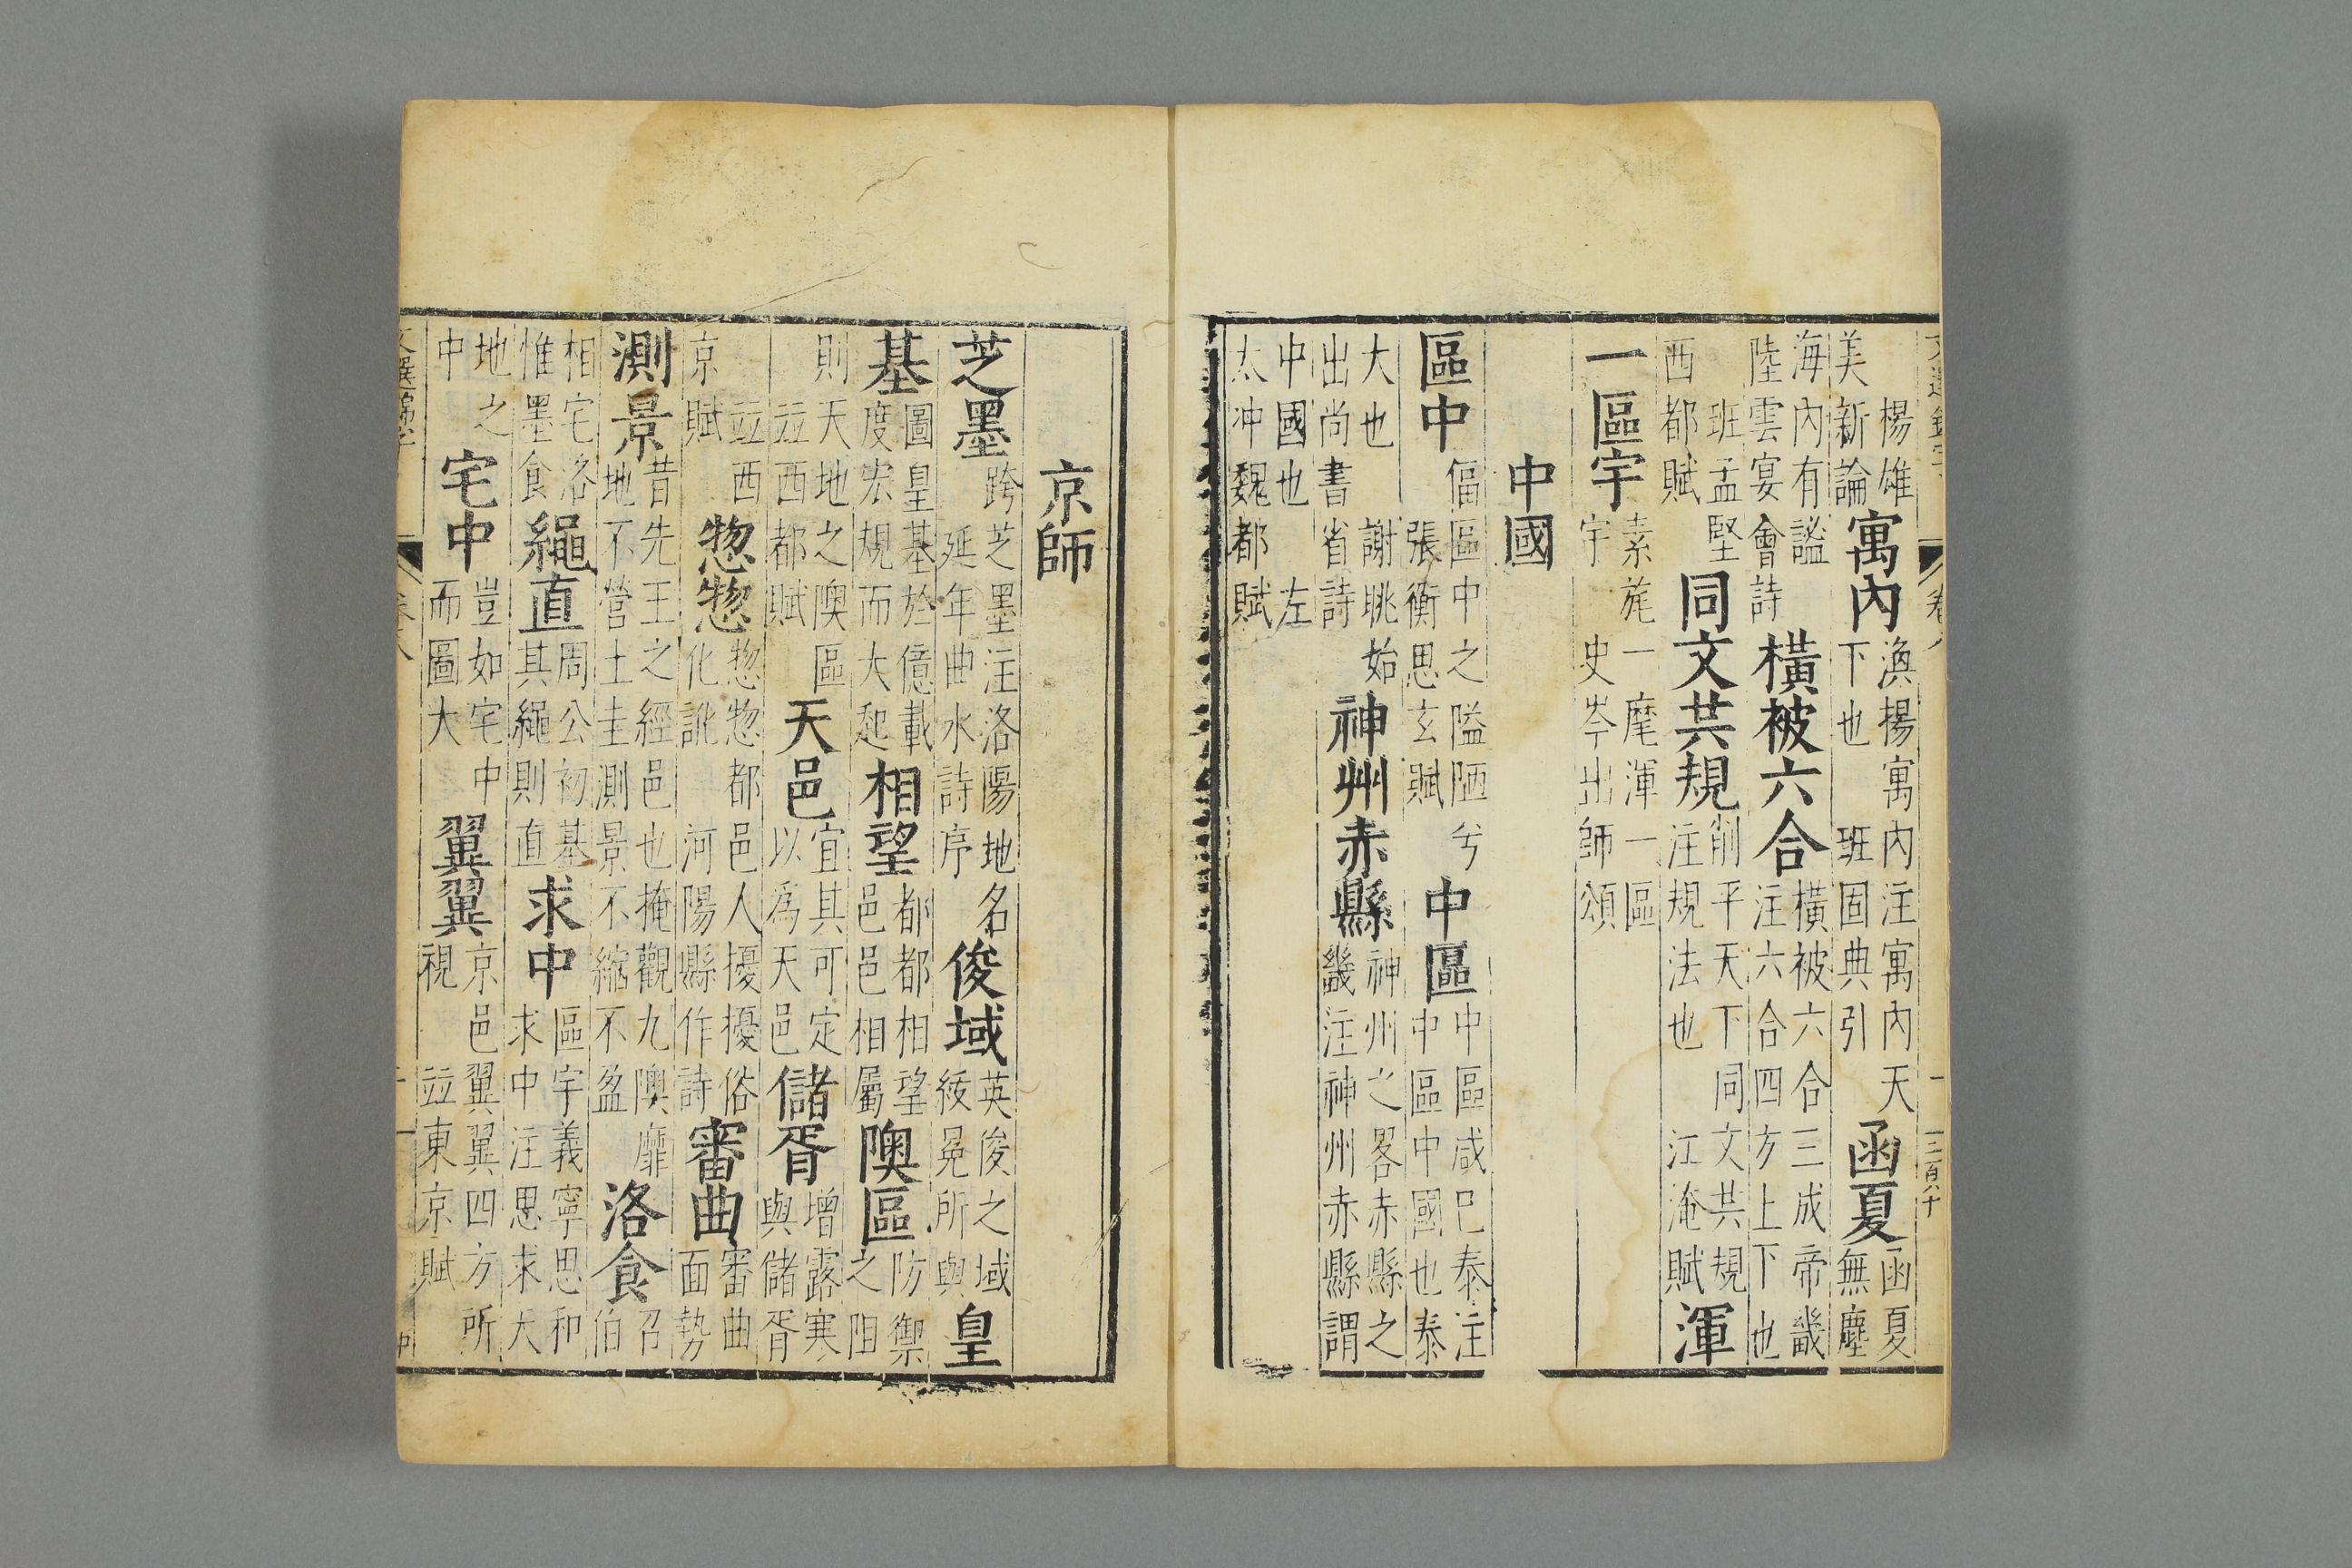 文選錦字 卷八 二百六十
楊雄美新論寓內渙揚寓內注寓內天下也 班固典引函夏函夏無塵
海內有謐陸雲宴會詩橫被六合橫被六合三成帝畿注六合四方上下也
班孟堅西都賦同文共規削平天下同文共規注規法也 江淹賦渾
一區宇素旄一麾渾一區宇 史岑出師頌
中國
區中偪區中之隘陋兮張衡思玄賦中區中區咸已泰注中區中國也泰
大也 謝眺始出尚書省詩神州赤縣神州之畧赤縣之畿注神州赤縣謂
中國也 左太冲魏都賦
京師
芝墨跨芝墨注洛陽地名延年曲水詩序俊域英俊之域紱冕所與皇
基圖皇基於億載度宏規而大起相望都都相望邑邑相屬隩區防禦之阻
則天地之隩區竝西都賦天邑宜其可定以為天邑儲胥增露寒與儲胥
竝西京賦惣惣惣惣都邑人擾擾俗化訛 河陽縣作詩審曲審曲面勢
測景昔先王之經邑也掩觀九隩靡地不營土圭測景不縮不盈洛食召伯
相宅洛惟墨食繩直周公初基其繩則直求中區宇義寧思和求中注思求大
地之中宅中豈如宅中而圖大翼翼京邑翼翼四方所視 竝東京賦